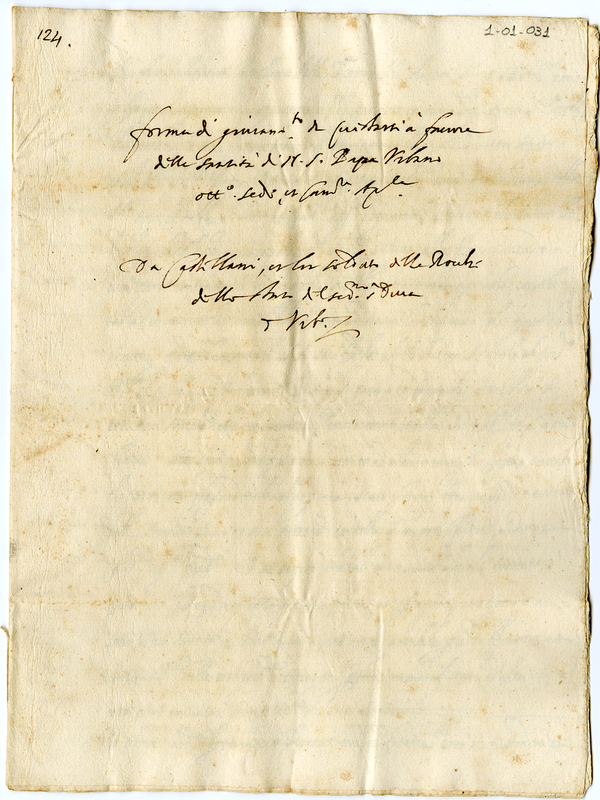 124.
1-01-031
forma di giuram.to da prestarsi à favore
della Santità di N. S. Papa Urbano
ott.o Sede, et Cam.ra Ap.la
Da Castellani, et lor soldati delle Rocche
dello Stato del ser.mo Duca
d'Urb.o